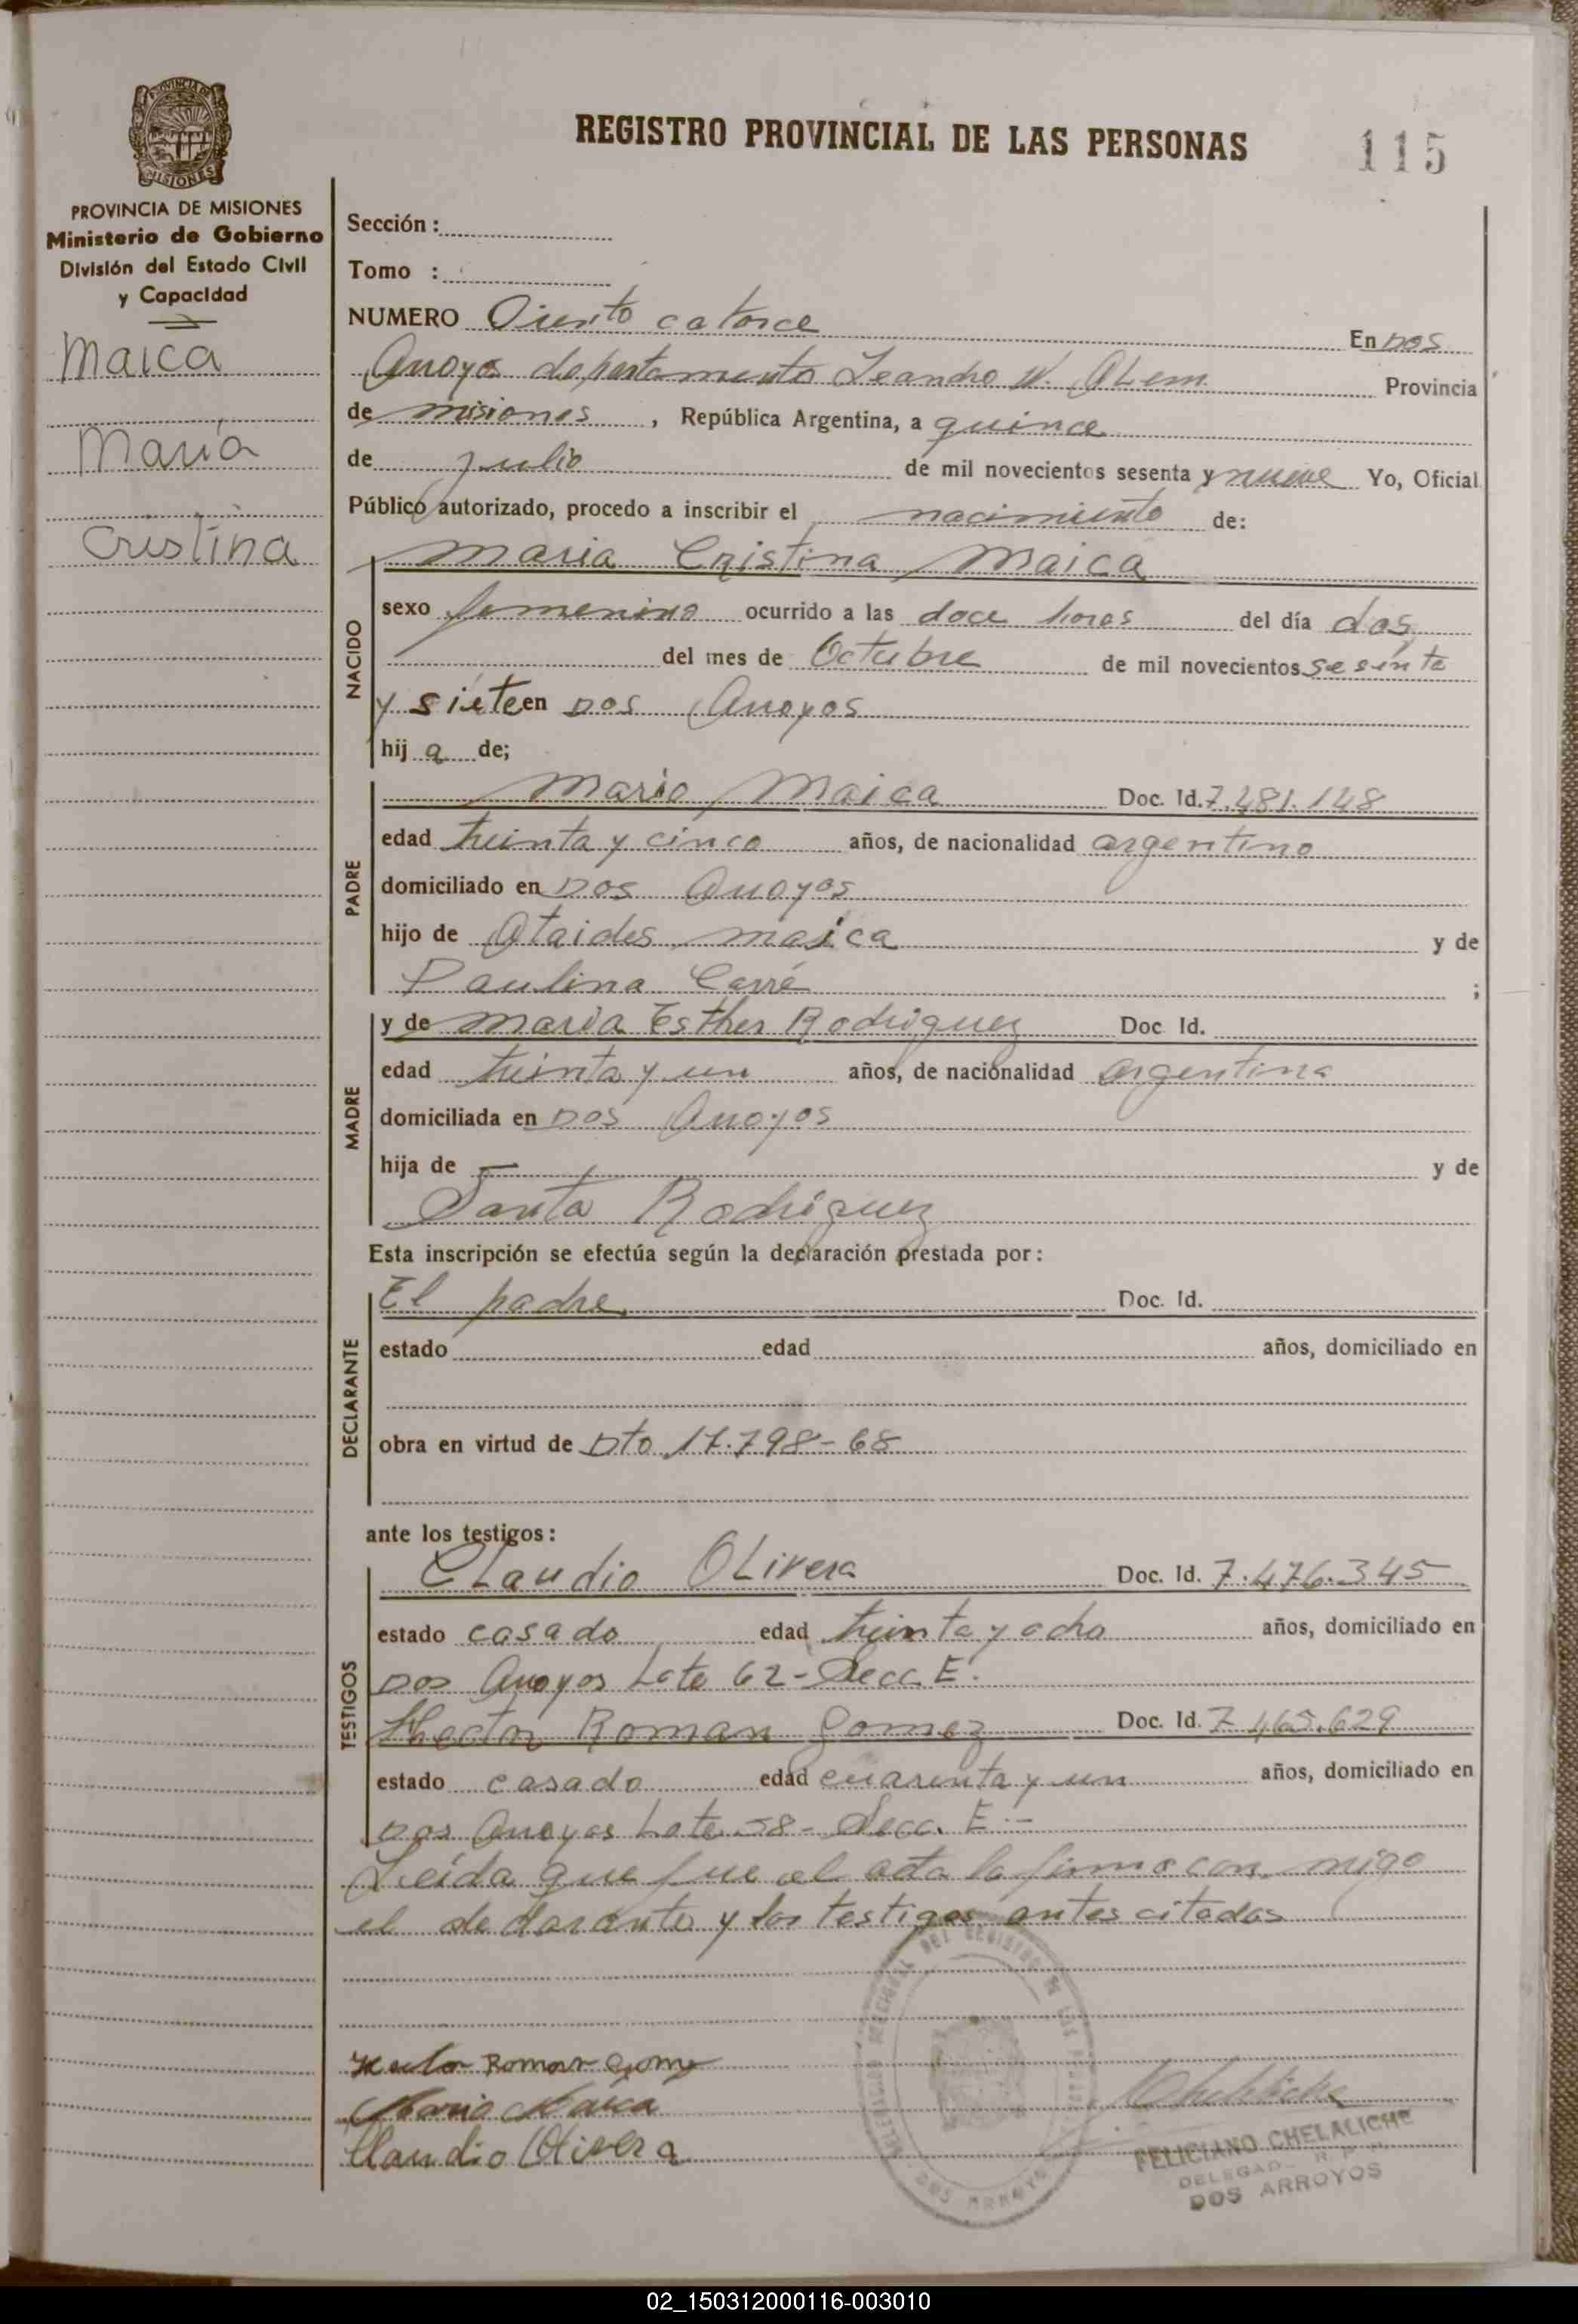 REGISTRO PROVINCIAL DE LAS PERSONAS
115
PROVINCIA DE MISIONES
PROVINCIA DE MISIONES
Ministerio de Gobierno
División del Estado Civil
y Capacidad
Maica
María
Cristina
Sección :
Tomo :
NUMERO Ciento catorce
En Dos
Arroyos departamento Leandro N. ALem Provincia
de misiones , República Argentina, a quince
de julio de mil novecientos sesenta y nueve Yo, Oficial
Público autorizado, procedo a inscribir el nacimiento de:
NACIDO
maria Cristina Maica
sexo femenino ocurrido a las doce horas del día dos
del mes de Octubre de mil novecientos sesenta
y siete en Dos Arroyos
hij a de;
PADRE
Mario Maica Doc. Id. 7.481.148
edad treinta y cinco años, de nacionalidad argentino
domiciliado en Dos Arroyos
hijo de Ataides maica y de
Paulina Carré ;
MADRE
y de Maria Esther Rodriguez Doc Id.
edad treinta y un años, de nacionalidad argentina
domiciliada en Dos Arroyos
hija de — y de
Santa Rodriguez
Esta inscripción se efectúa según la declaración prestada por :
DECLARANTE
El padre Doc. Id.
estado edad años, domiciliado en
obra en virtud de Dto 17.798-68
ante los testigos :
TESTIGOS
CLaudio OLivera Doc. Id. 7.476.345
estado casado edad treinta y ocho años, domiciliado en
Dos Arroyos Lote 62- Secc. E.
Hector Roman Gomez Doc. Id. 7.465.629
estado casado edad cuarenta y un años, domiciliado en
Dos Arroyos Lote 58- Secc. E.-
Leída que fue el acta la firma con migo
el declarante y los testigos antes citados
Hector Roman Gomez
Mario Maica
Claudio Olivera
DEL REGISTRO DE LAS
DOS ARROYOS
FELICIANO CHELALICHE
DELEGAD
DOS ARROYOS
02_150312000116-003010